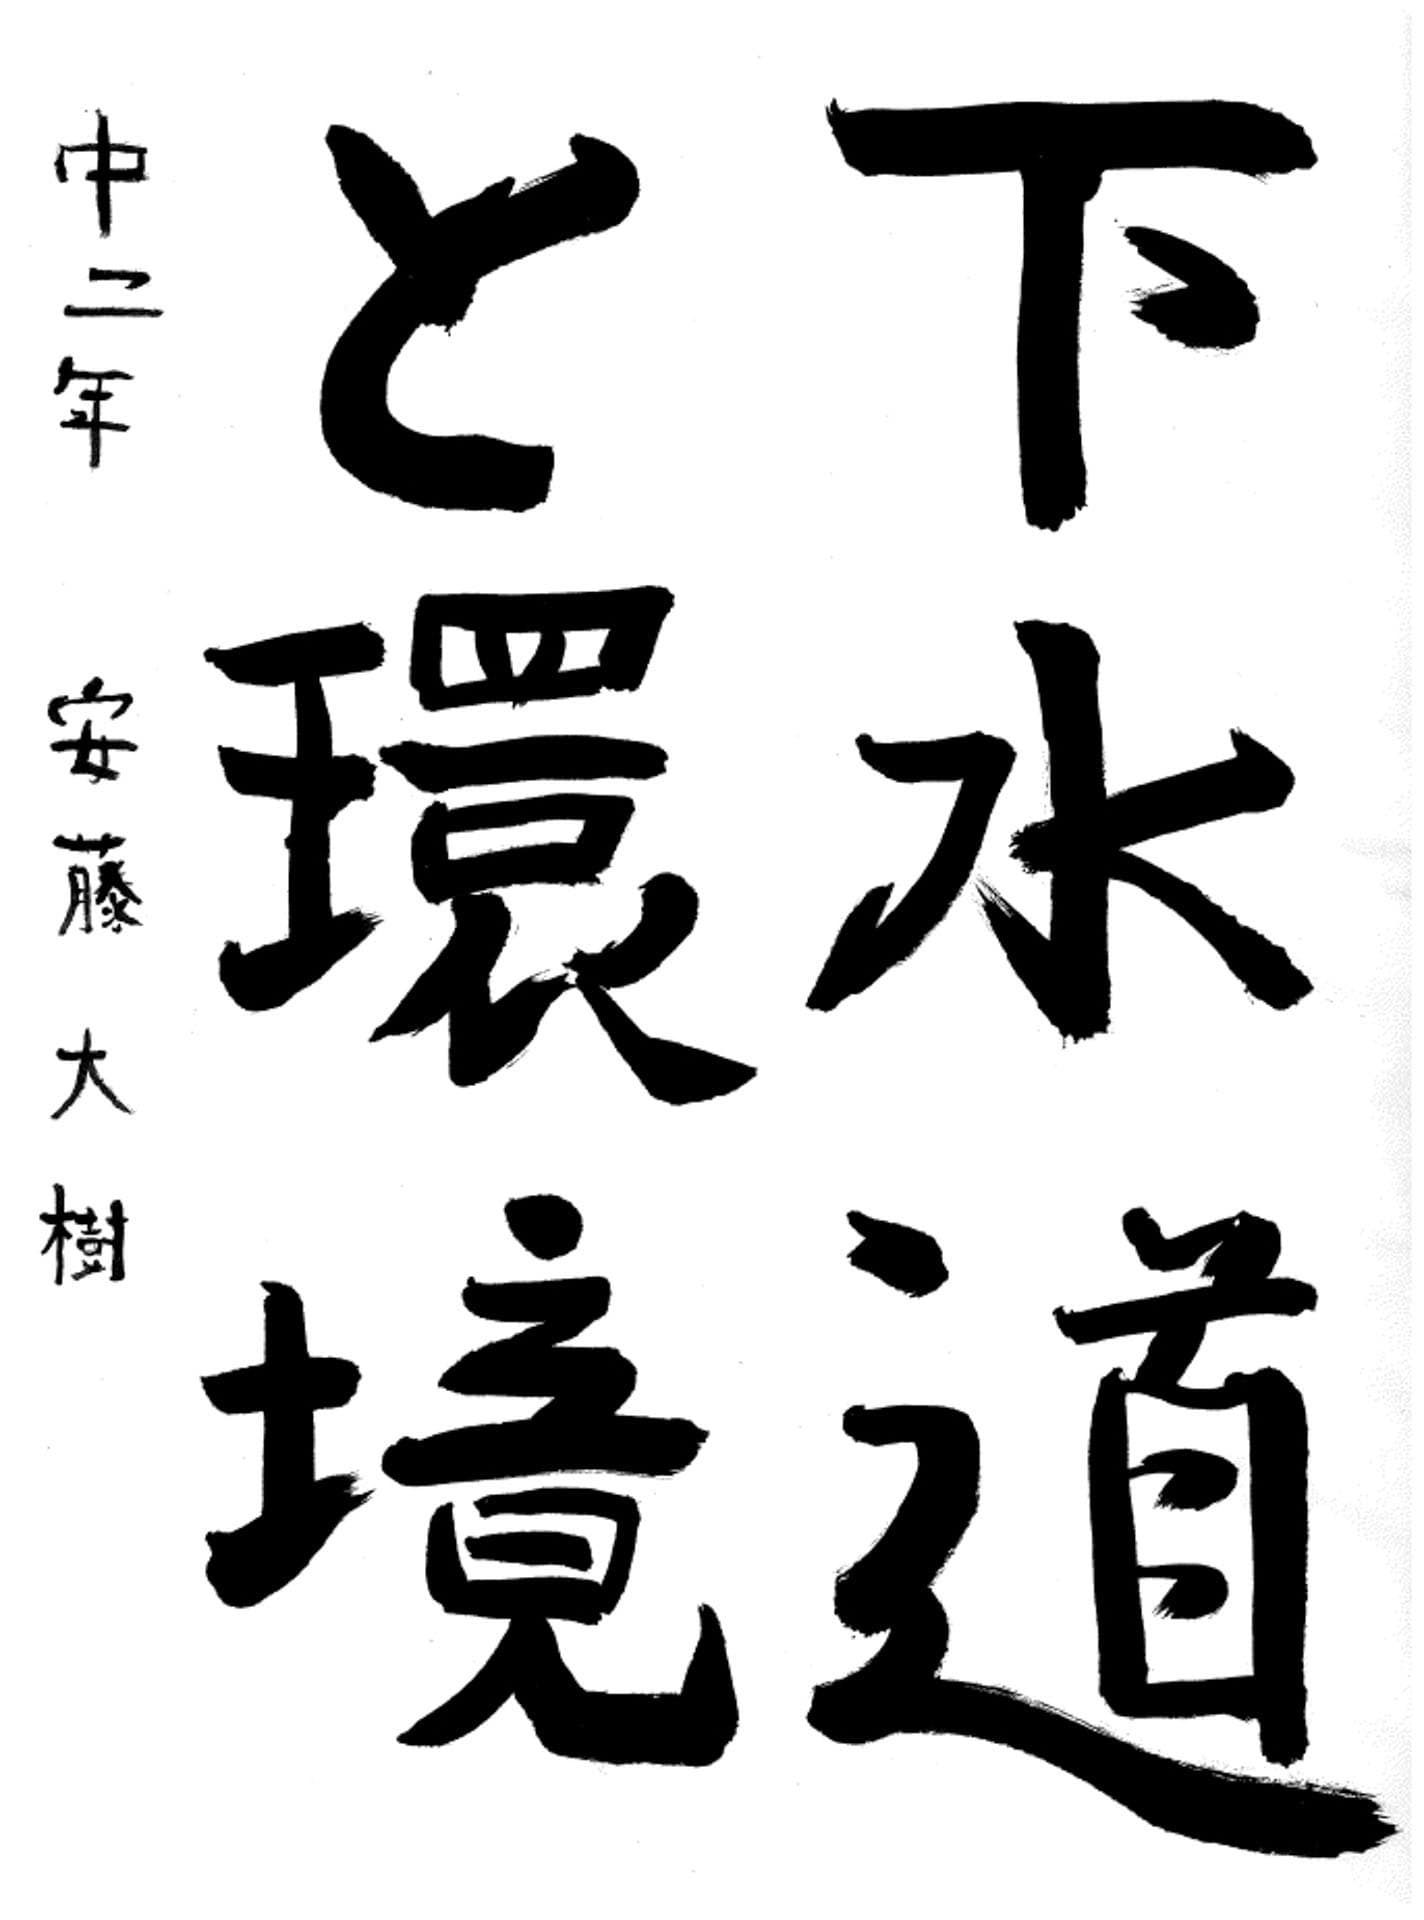 下水道
と環境
中二年 安藤大樹